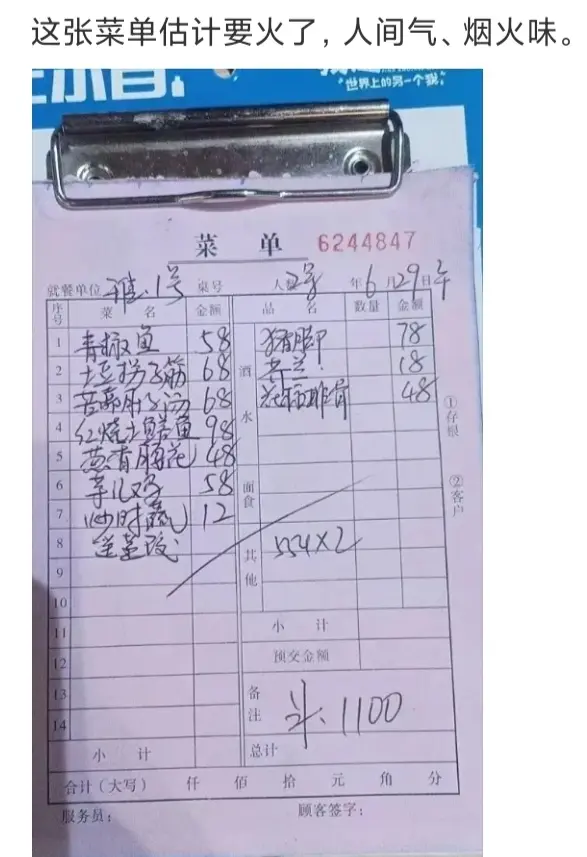 这张菜单估计要火了，人间气、烟火味。
世界上的另一个我
菜 单 6244847
就餐单位 雅.1号 桌号 人数 2号 年 6 月 29 日 午
序号 菜 名 金额 品 名 数量 金额
1 青椒鱼 58 猪脚 78
2 土豆拐子筋 68 酒水 18
3 68 48
4 红烧土鳝鱼 98
5 葱香脑花 48
6 58 面食
7 炒时蔬 12
8 其他 554×2
9
10
11 小 计
12 预交金额
13 备注 1100
14
小 计 总计
合计（大写） 仟 佰 拾 元 角 分
服务员： 顾客签字：
①存根
②客户